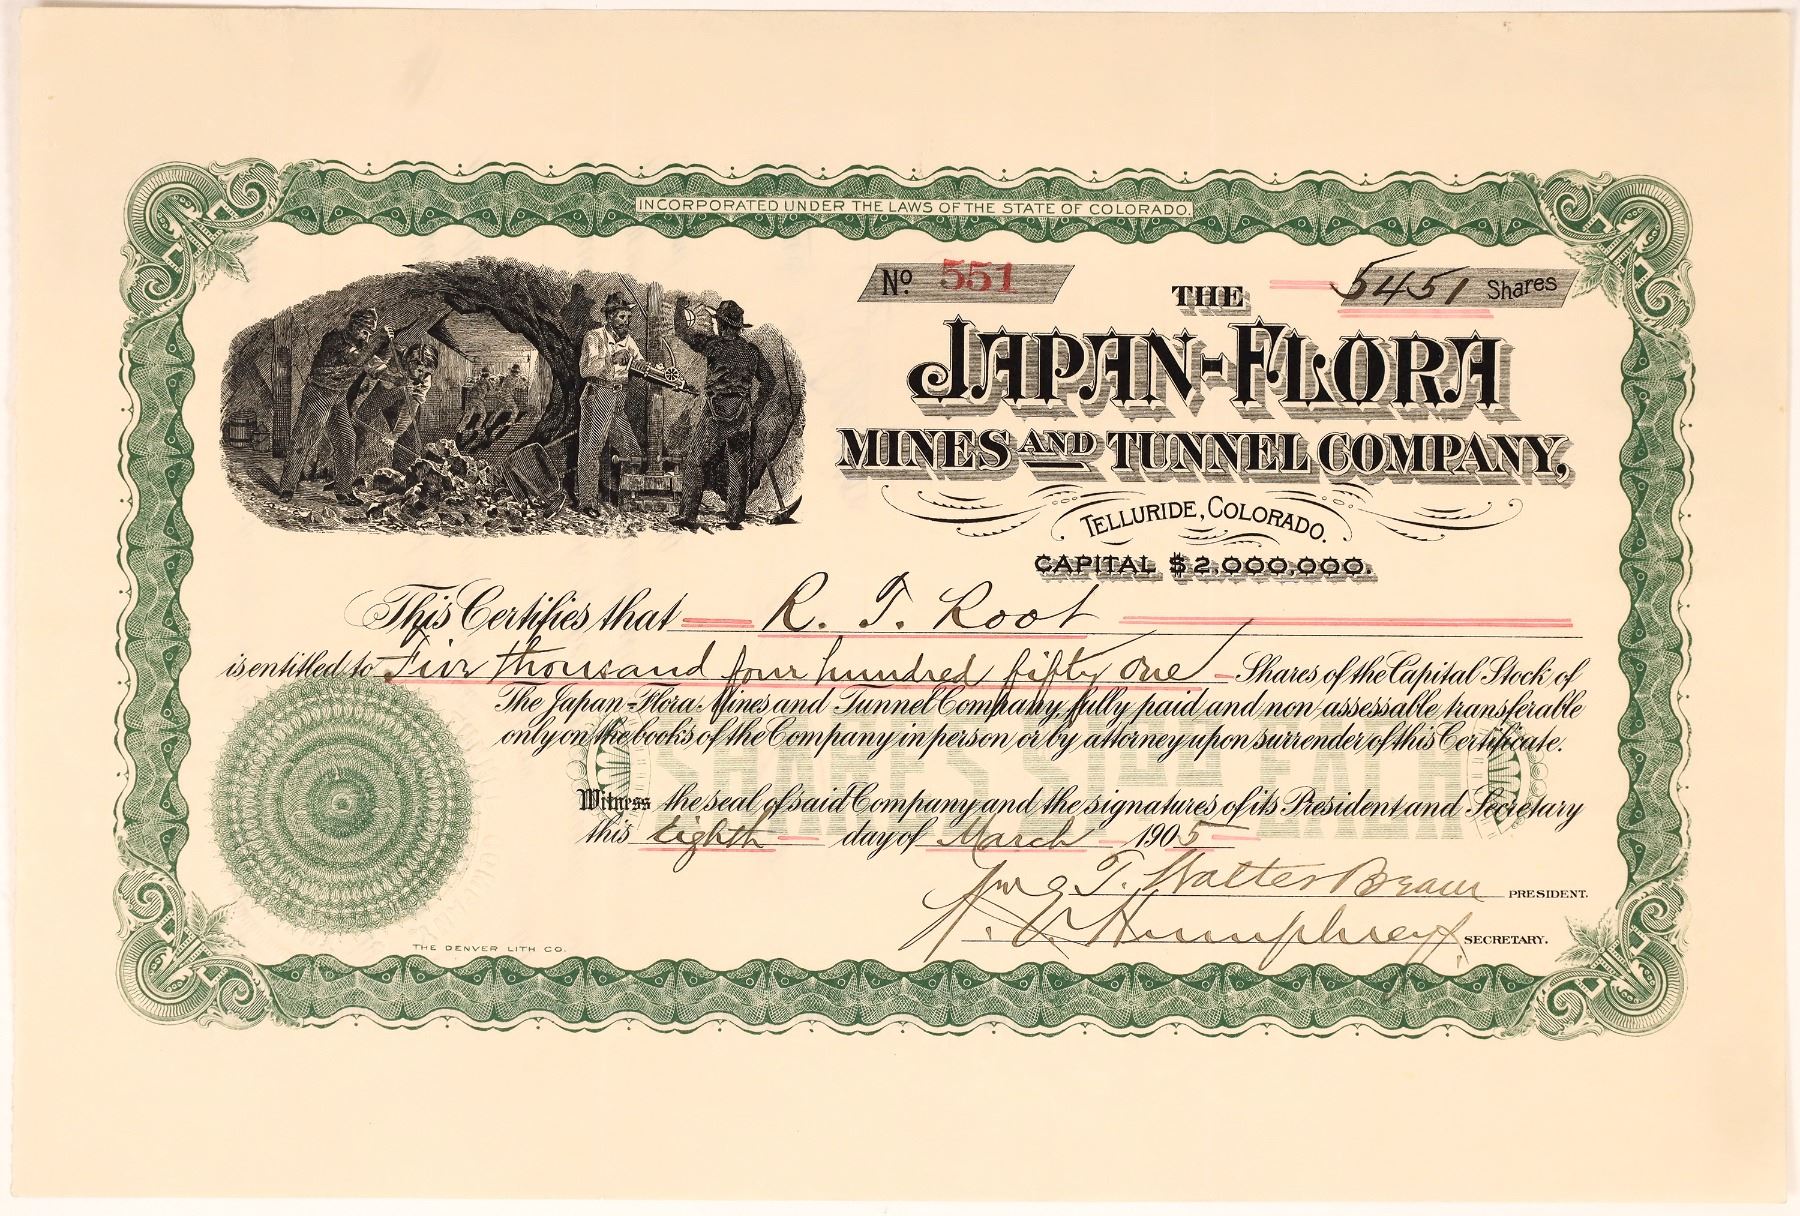 INCORPORATED UNDER THE LAWS OF THE STATE OF COLORADO.
No. 551
5451 Shares
THE
JAPAN-FLORA
MINES AND TUNNEL COMPANY,
TELLURIDE, COLORADO.
CAPITAL $2,000,000.
This Certifies that R. T. Root
is entitled to Five thousand four hundred fifty one Shares of the Capital Stock of
The Japan-Flora Mines and Tunnel Company, fully paid and non-assessable, transferable
only on the books of the Company in person or by attorney upon surrender of this Certificate.
SHARES $1.00 EACH
Witness the seal of said Company and the signatures of its President and Secretary
this Eighth day of March 1905
T. Walter Beam PRESIDENT.
Humphreys SECRETARY.
THE DENVER LITH CO.